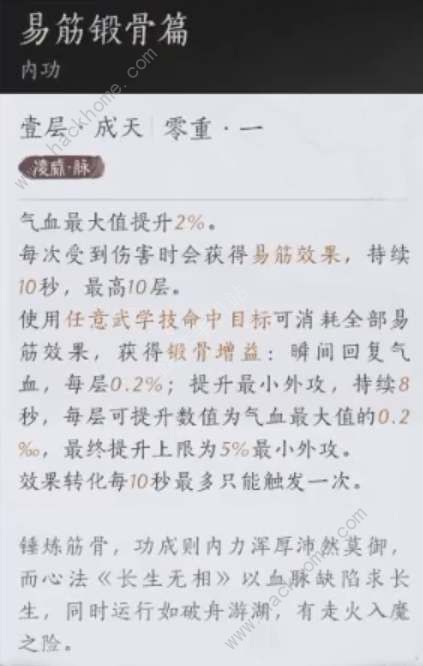 易筋锻骨篇
内功
壹层·成天 零重·一
凌威·脉
气血最大值提升2%。
每次受到伤害时会获得易筋效果，持续
10秒，最高10层。
使用任意武学技命中目标可消耗全部易
筋效果，获得锻骨增益：瞬间回复气
血，每层0.2%；提升最小外攻，持续8
秒，每层可提升数值为气血最大值的0.2
‰，最终提升上限为5%最小外攻。
效果转化每10秒最多只能触发一次。
锤炼筋骨，功成则内力浑厚沛然莫御，
而心法《长生无相》以血脉缺陷求长
生，同时运行如破舟游湖，有走火入魔
之险。
www.hackhome.com